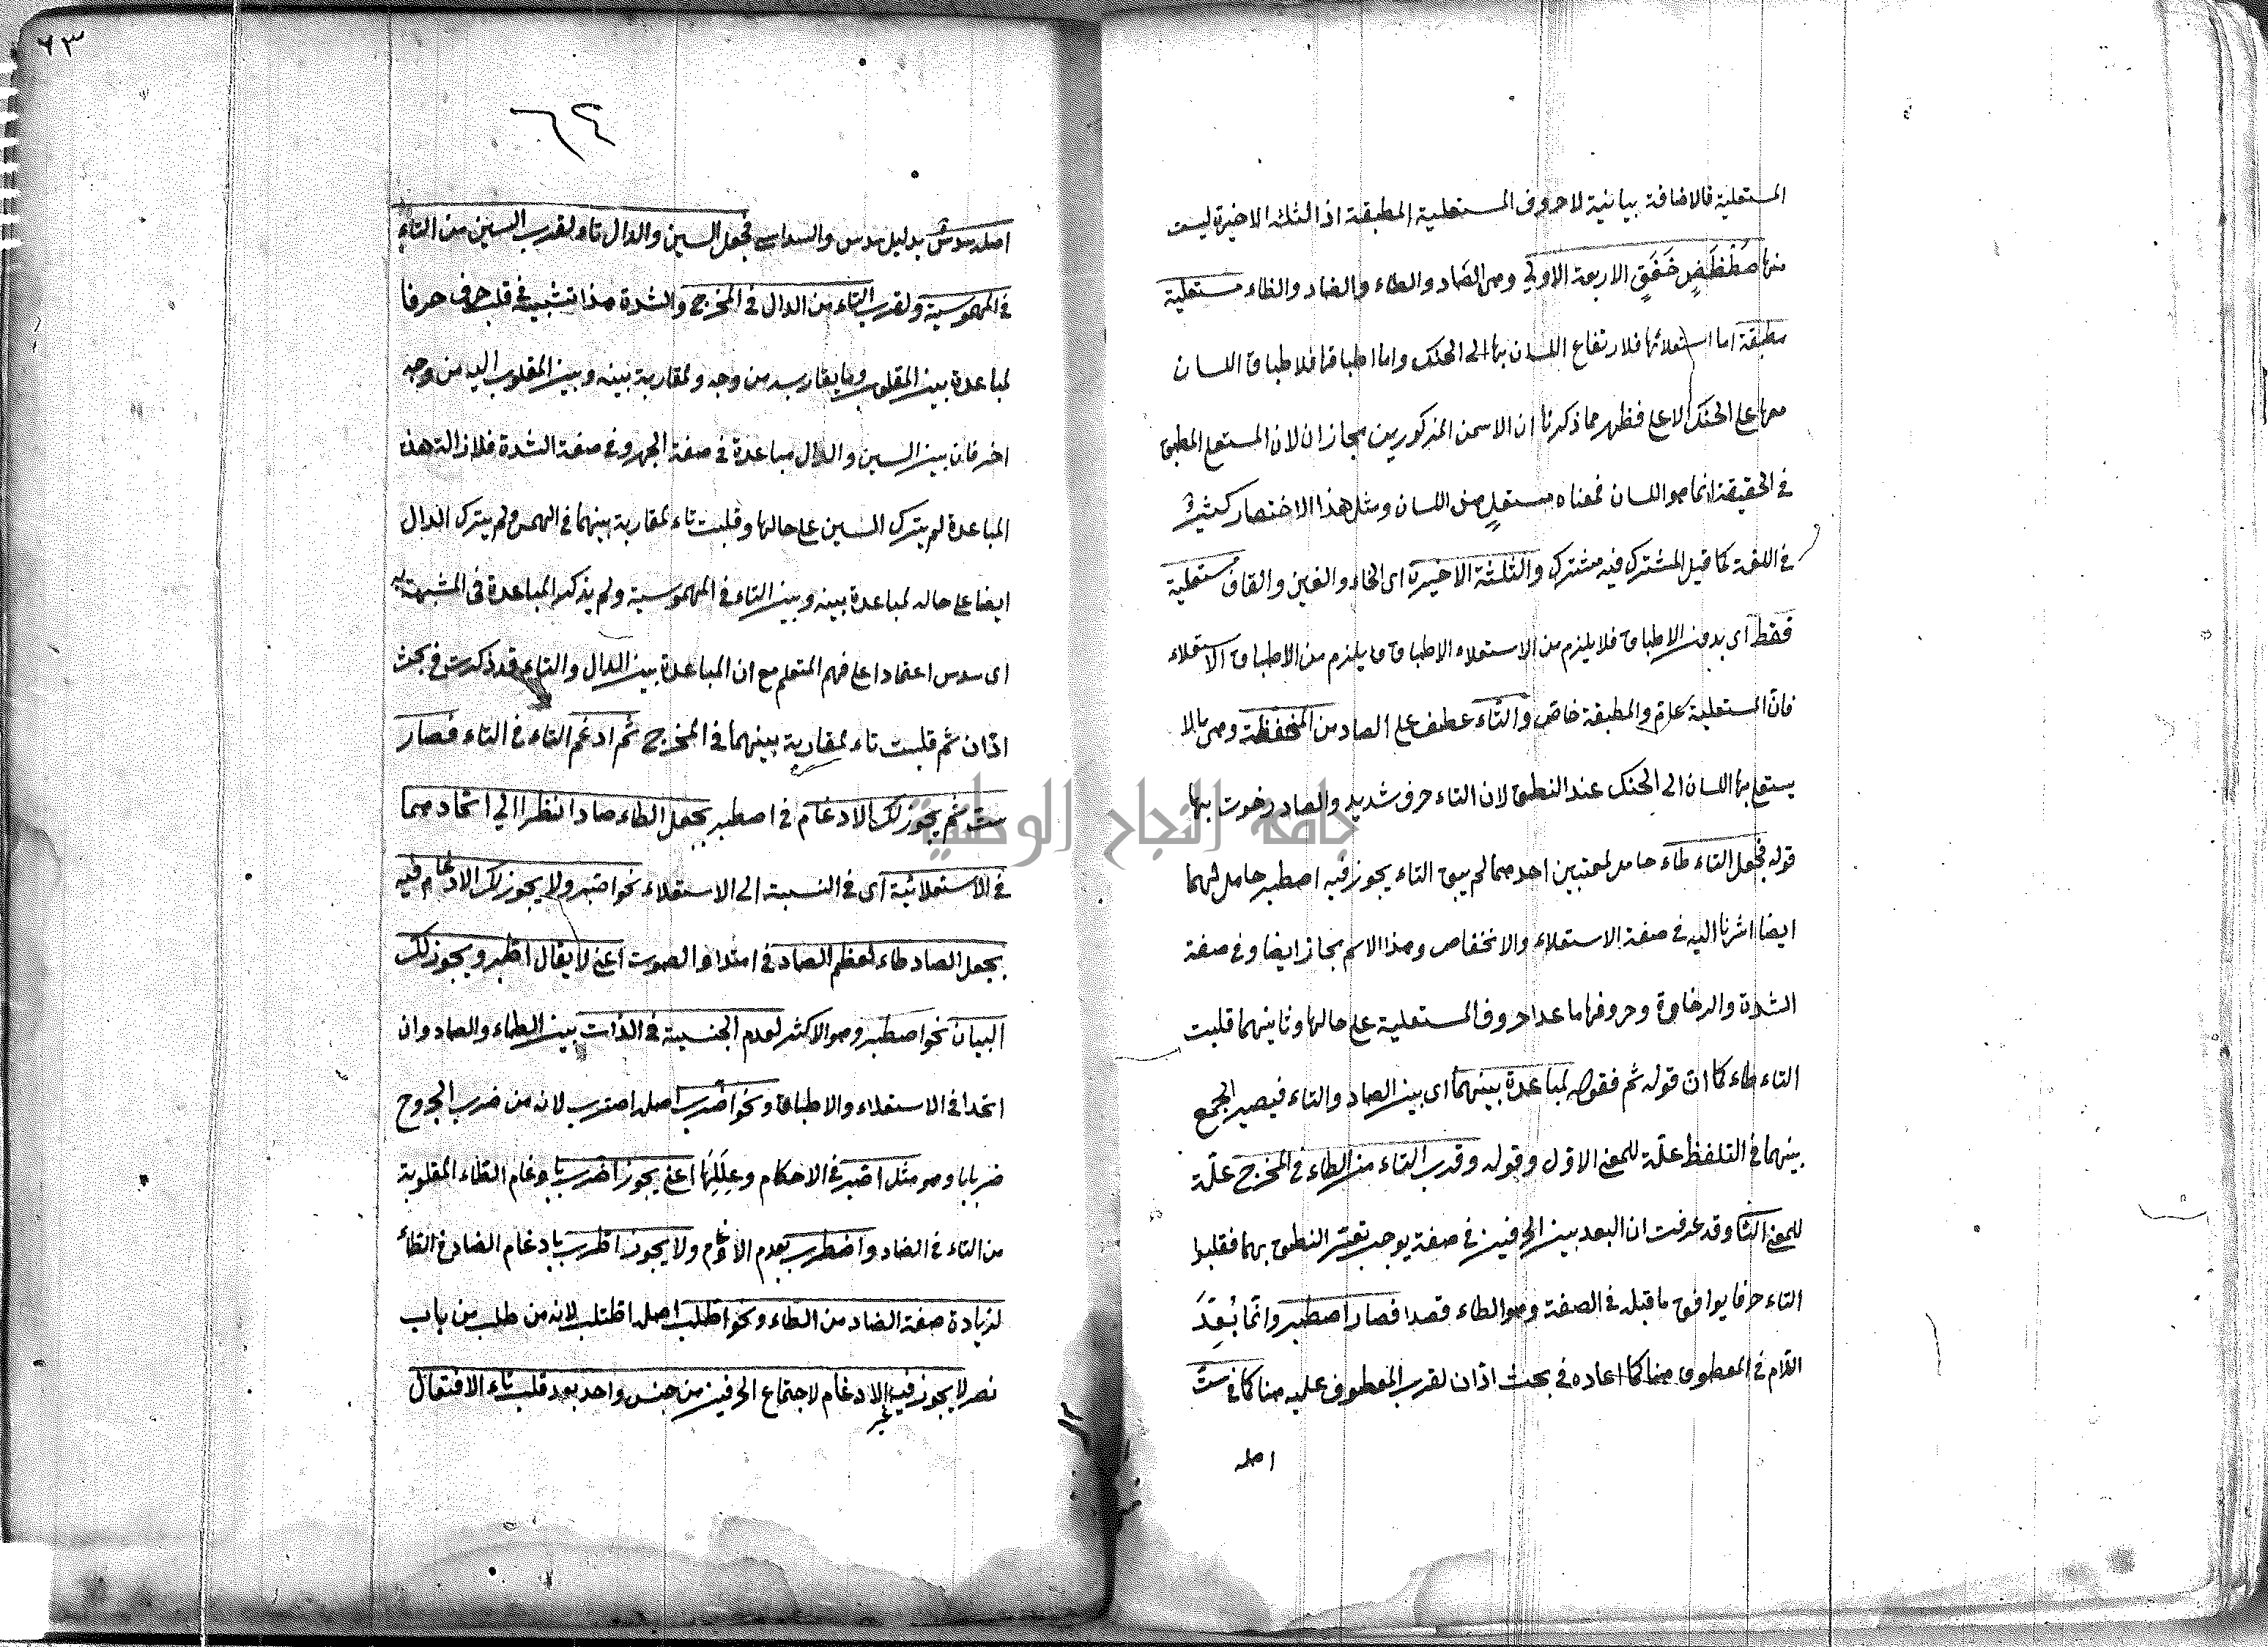 المستعلية فالاضافة بيانية لا حروف المستعلية المطبقة اذ الثلثة الاخيرة ليست
منها صَطْظَضٍ خَغَقٍ الاربعة الاولى وهى الصاد والطاء والضاد والظاء مستعلية
مطبقة اما استعلائها فلارتفاع اللسان بها الى الحنك واما اطباقها فلاطباق اللسان
معها على الحنك الاعلى فظهر مما ذكرنا ان الاسمين المذكورين مجازان لان المستعلى المطبق
فى الحقيقة انما هو اللسان فمعناه مستعلٍ منه اللسان ومثل هذا الاختصار كثيرٌ
فى اللغة كما قيل المشترك فيه مشترك والثلثة الاخيرة اى الخاء والغين والقاف مستعلية
فقط اى بدون الاطباق فلا يلزم من الاستعلاء الاطباق ويلزم من الاطباق الاستعلاء
فانّ المستعلية عامّ والمطبقة خاصّ والتاء عطف على الصاد من المنخفظة وهى ما لا
يستعلى بها اللسان الى الحنك عند النطق لان التاء حرف شديد والصاد رخوت بها
قوله فجعل التاء طاء حامد لمعنيين احدهما لم يبق التاء يجوز فيه اصطبر حامل لهما
ايضا اشرنا اليه فى صفة الاستعلاء والانخفاض وهذا الاسم مجاز ايضا وفى صفة
الشدة والرخاوة وحروفها ما عدا حروف المستعلية على حالها وثانيهما قلبت
التاء طاء كما ان قوله ثم فقوله لمباعدة بينهما اى بين الصاد والتاء فيصير الجمع
بينهما فى التلفظ علّة للمعنى الاوّل وقوله وقرب التاء من الطاء فى المخرج علّة
للمعنى الثا وقد عرفت ان البعد بين الحرفين فى صفة يوجب تعسّر النطق بهما فقلبوا
التاء حرفا يوافق ما قبله فى الصفة وهو الطاء قصدا فصار اصطبر وانّما بُعِّدَ
اللام فى المعطوف هنا كما اعاده فى بحث ادّان لقرب المعطوف عليه هنا كما فى ستّ
اصله
٦٣
٦٤
اصله سدسٌ بدليل سدس والسداسى فجعل السين والدال تاء لقرب السين من التاء
فى المهموسية ولقرب التاء من الدال فى المخرج والشدة هذا تشبيه فى قلب حرف حرفا
لمباعدة بين المقلوب وما يقاربه من وجه ولمقاربة بينه وبين المقلوب اليه من وجه
اخر فان بين السين والدال مباعدة فى صفة الجهر وفى صفة الشدة فلازالة هذه
المباعدة لم يترك السين على حالها وقلبت تاء لمقاربة بينهما فى الهمس ولم يترك الدال
ايضا على حاله لمباعدة بينه وبين التاء فى المهموسية ولم يذكر المباعدة فى المشبه به
اى سدس اعتمادا على فهم المتعلم مع ان المباعدة بين الدال والتاء قد ذكرت فى بحث
ادّان ثم قلبت تاء لمقاربة بينهما فى المخرج ثم ادغم التاء فى التاء فصار
ست ثم يجوز لك الادغام فى اصطبر بجعل الطاء صادا نظرا الى اتحادهما
فى الاستعلائية اى فى النسبة الى الاستعلاء نحو اصّبر ولا يجوز لك الادغام فيه
بجعل الصاد طاء لعظم الصاد فى امتداد الصوت اعنى لا يقال اطّبر ويجوز لك
البيان نحو اصطبر وهو الاكثر لعدم الجنسية فى الذات بين الطاء والصاد وان
اتحدا فى الاستعلاء والاطباق ونحو اضّرب اصله اضترب لانه من ضرب الجروح
ضربانا وهو مثل اصّبر فى الاحكام وعِلَلِهَا اعنى يجوز اضّرب بادغام الطاء المقلوبة
من التاء فى الضاد واضطرب بعدم الادغام ولا يجوز اطّرب بادغام الضاد فى الطاء
لزيادة صفة الضاد من الطاء ونحو اطّلب اصله اطتلب لانه من طلب من باب
نصر لا يجوز فيه غير الادغام لاجتماع الحرفين من جنس واحد بعد قلب تاء الافتعال
جامعة النجاح الوطنية